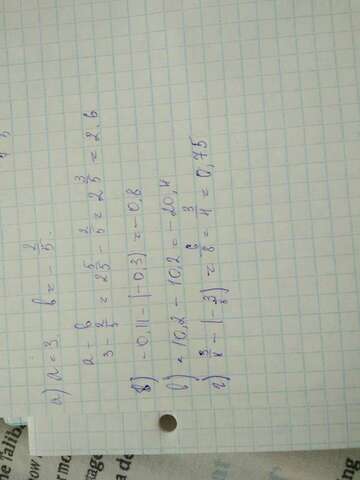 а) a = 3, b = - 2/5.
a - b
3 - 2/5 = 2 5/5 - 2/5 = 2 3/5 = 2,6
б) - 0,11 - (-0,3) = - 0,8
в) - 10,2 - 10,2 = - 20,4
г) 3/8 - (- 3/8) = 6/8 = 3/4 = 0,75
he Talib